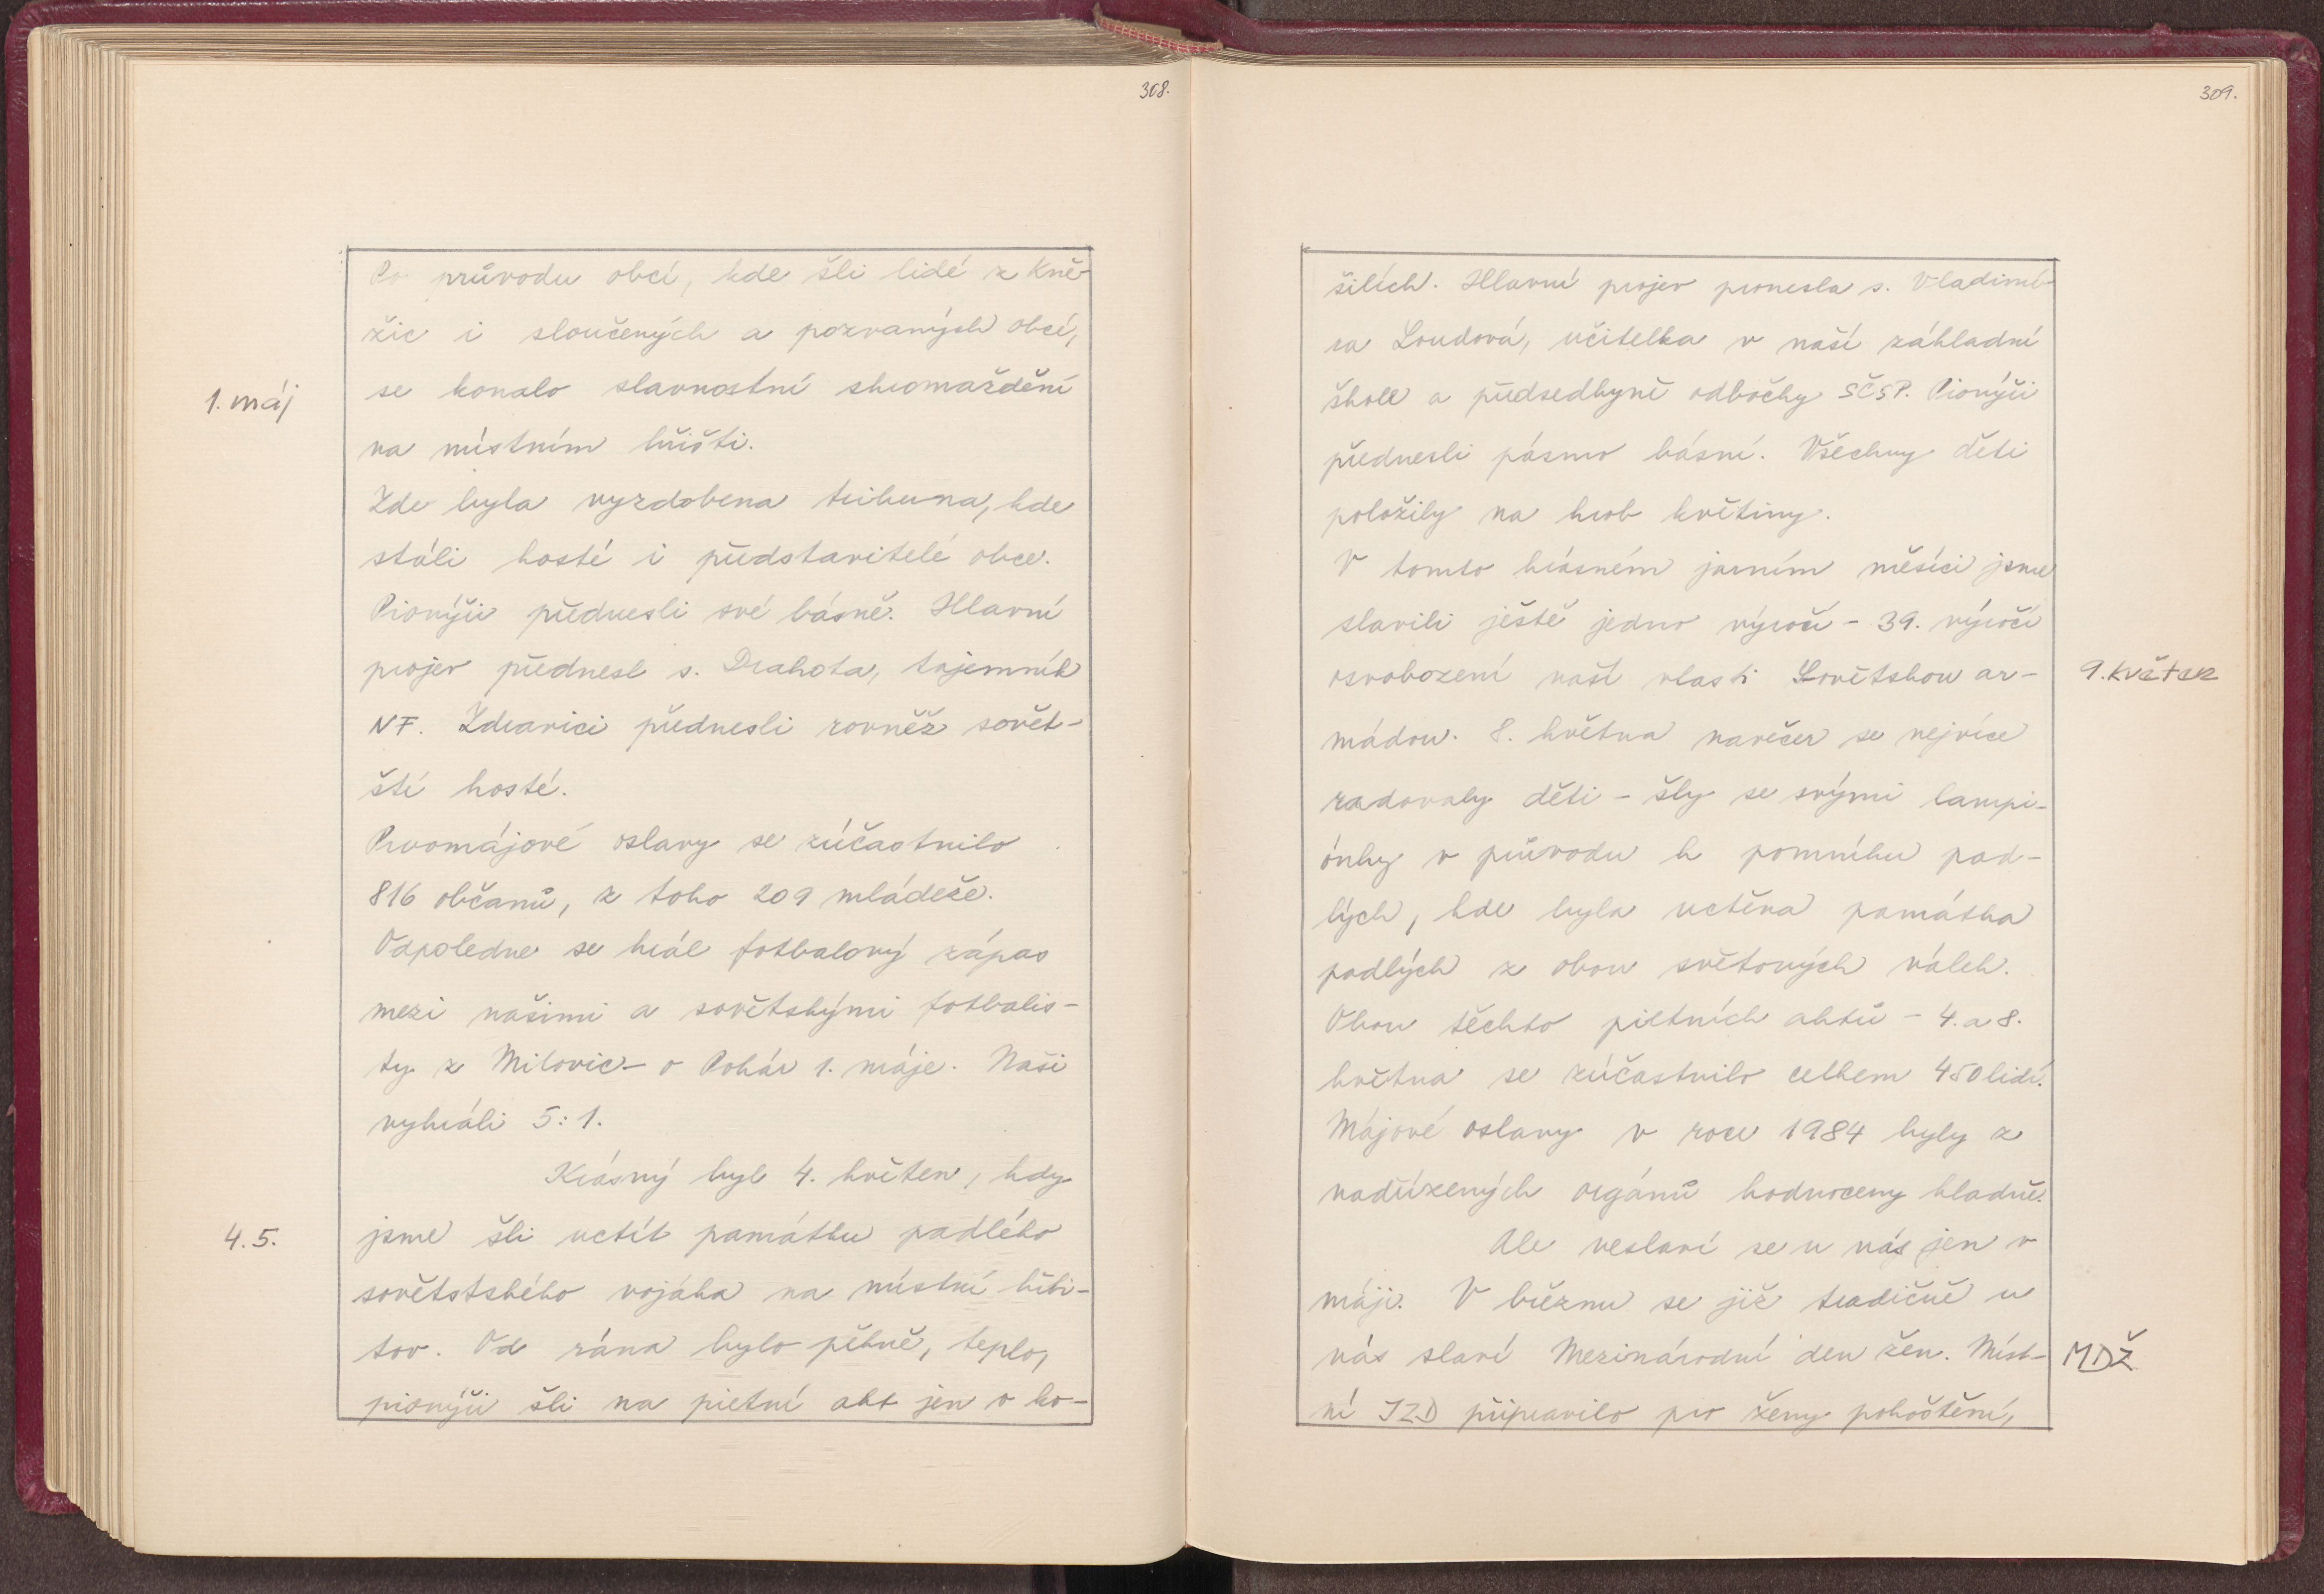 308.
Po průvodu obcí, kde šli lidé z Kně-
žic i sloučených a pozvaných obcí,
1. máj
se konalo slavnostní shromaždění
na místním hřišti.
Zde byla vyzdobena tribuna, kde
stáli hosté i představitelé obce.
Pionýři přednesli své básně. Hlavní
projev přednesl s. Drahota, tajemník
NF. Zdravici přednesli rovněž sovět-
ští hosté.
Prvomájové oslavy se zúčastnilo
816 občanů, z toho 209 mládeže.
Odpoledne se hrál fotbalový zápas
mezi našimi a sovětskými fotbalis-
ty z Milovic - o Pohár 1. máje. Naši
vyhráli 5:1.
Krásný byl 4. květen, kdy
4. 5.
jsme šli uctít památku padlého
sovětstského vojáka na místní hřbi-
tov. Od rána bylo pěkně, teplo,
pionýři šli na pietní akt jen v ko-
309.
šilích. Hlavní projev pronesla s. Vladimí-
ra Loudová, učitelka v naší základní
škole a předsedkyně odbočky SČSP. Pionýři
přednesli pásmo básní. Všechny děti
položily na hrob květiny.
V tomto krásném jarním měsíci jsme
slavili ještě jedno výročí - 39. výročí
osvobození naší vlasti Sovětskou ar-
9. květen
mádou. 8. května navečer se nejvíce
radovaly děti - šly se svými lampi-
ónky v průvodu k pomníku pad-
lých, kde byla uctěna památka
padlých z obou světových válek.
Obou těchto pietních aktů - 4. a 8.
května se zúčastnilo celkem 450 lidí.
Májové oslavy v roce 1984 byly z
nadřízených orgánů hodnoceny kladně.
Ale neslaví se u nás jen v
máji. V březnu se již tradičně u
nás slaví Mezinárodní den žen. Míst-
MDŽ
ní JZD připravilo pro ženy pohoštění,